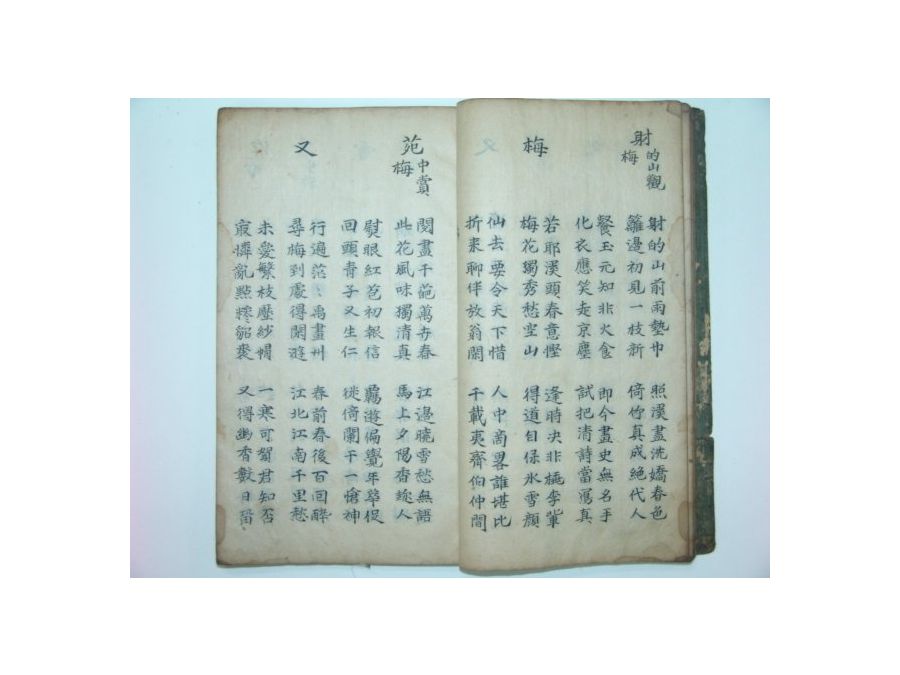 射的山觀梅
射的山前雨墊巾
籬邊初見一枝新
照漢畫洗嬌春色
倚竹真成絶代人
餐玉元知非火食
化衣應笑走京塵
即今畫史無名手
試把清詩當寫真
梅
若耶漢頭春意慳
梅花獨秀愁空山
逢時决非桃李輩
得道自保氷雪顔
仙去要令天下惜
折来聊伴放翁閑
人中商畧誰堪比
千載夷齊伯仲間
苑中賞梅
閱畫千葩萬卉春
此花風味獨清真
江邊曉雪愁無語
馬上夕陽香趂人
熨眼紅苞初報信
回頭青子又生仁
羈遊偏覺年華促
徙倚闌干一愴神
又
行遍茫〻禹畫州
尋梅到處得閑遊
春前春後百回醉
江北江南千里愁
未愛繁枝壓紗帽
㝡憐亂點糝貂裘
一寒可賀君知否
又得幽香數日留